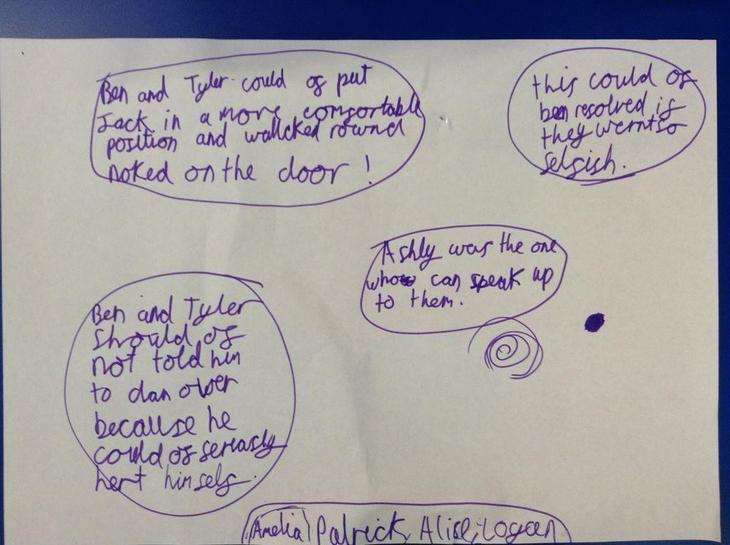 Ben and Tyler could of put
Jack in a more comfortable
position and wallcked rownd
noked on the door !
this could of
ben resolved if
they wernt so
selfish.
Ashly was the one
who can speak up
to them.
Ben and Tyler
should of
not told him
to clan over
because he
could of seriasly
hert himself.
Amelia Patrick, Alise, Logan